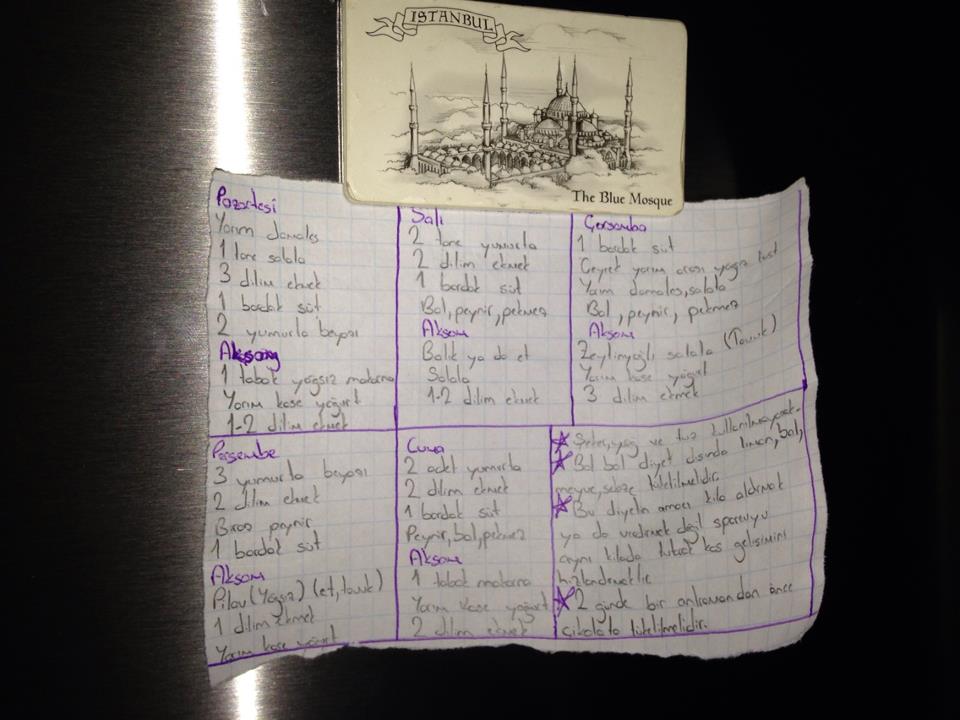 ISTANBUL
The Blue Mosque
Pazartesi
Yarım domates
1 tane salata
3 dilim ekmek
1 bardak süt
2 yumurta beyazı
Akşam
1 tabak yağsız makarna
Yarım kase yoğurt
1-2 dilim ekmek
Salı
2 tane yumurta
2 dilim ekmek
1 bardak süt
Bal, peynir, pekmez
Akşam
Balık ya da et
Salata
1-2 dilim ekmek
Çarşamba
1 bardak süt
Çeyrek yarım arası yağsız tost
Yarım domates, salata
Bal, peynir, pekmez
Akşam
Zeytinyağlı salata (Tavuk)
Yarım kase yoğurt
3 dilim ekmek
Perşembe
3 yumurta beyazı
2 dilim ekmek
Biraz peynir
1 bardak süt
Akşam
Pilav (Yağsız) (et, tavuk)
1 dilim ekmek
Yarım kase yoğurt
Cuma
2 adet yumurta
2 dilim ekmek
1 bardak süt
Peynir, bal, pekmez
Akşam
1 tabak makarna
Yarım kase yoğurt
2 dilim ekmek
Şeker, yağ ve tuz kullanılmayacak.
Bol bol diyet dışında limon, bal,
meyve, sebze tüketilmelidir.
Bu diyetin amacı kilo aldırmak
ya da verdirmek değil sporcuyu
aynı kiloda tutarak kas gelişimini
hızlandırmaktır
2 günde bir antrenmandan önce
çikolata tüketilmelidir.